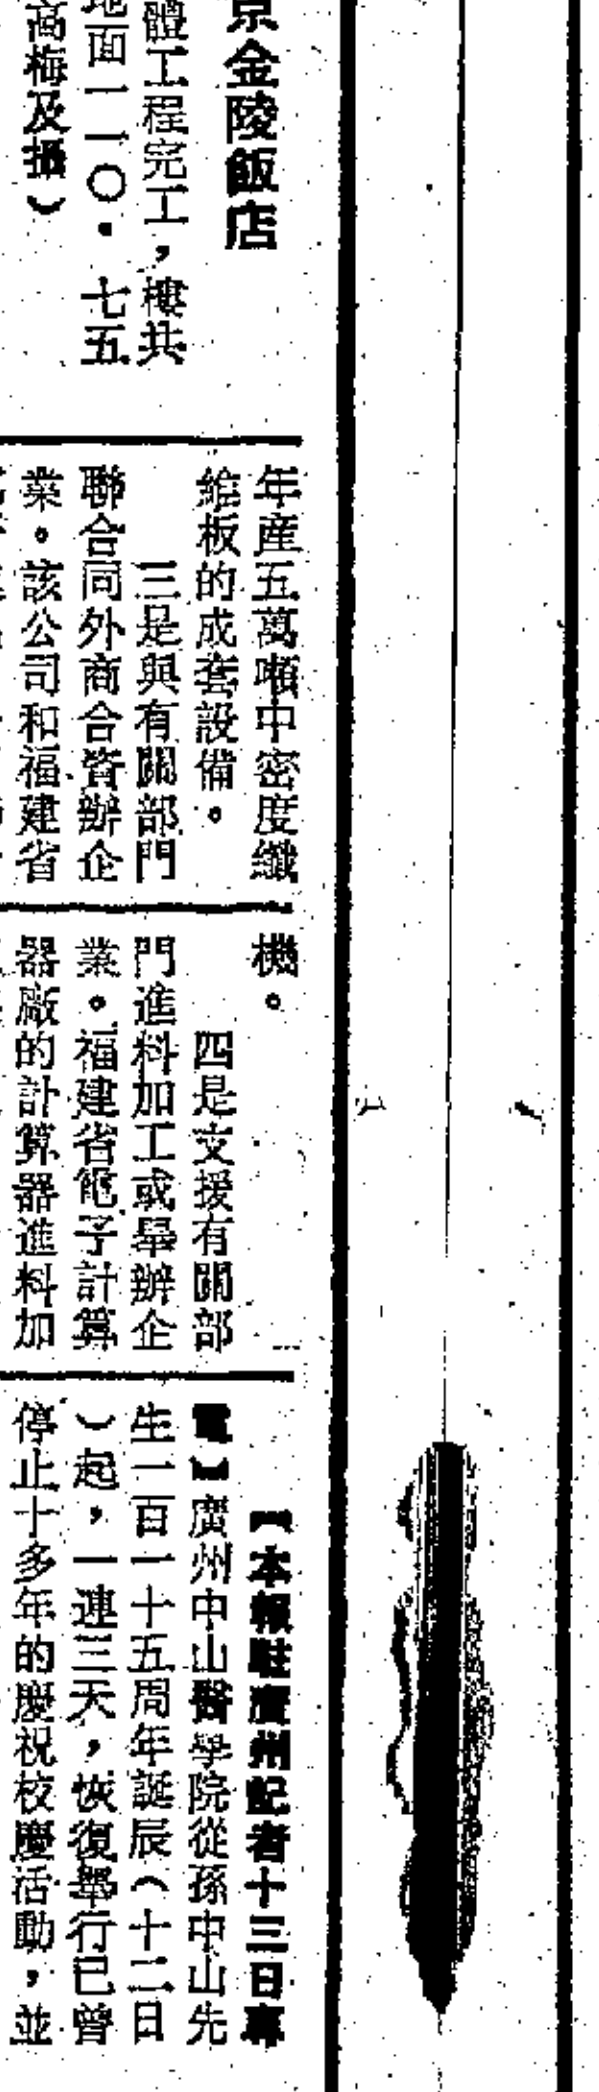 京金陵飯店
體工程完工，樓共
地面一一〇．七五
高梅及攝）
年產五萬噸中密度纖
維板的成套設備。
三是與有關部門
聯合同外商合資辦企
業。該公司和福建省
機。
四是支援有關部
門進料加工或舉辦企
業。福建省電子計算
器廠的計算器進料加
【本報駐廣州記者十三日專
電】廣州中山醫學院從孫中山先
生一百一十五周年誕辰（十二日
）起，一連三天，恢復舉行已曾
停止十多年的慶祝校慶活動，並